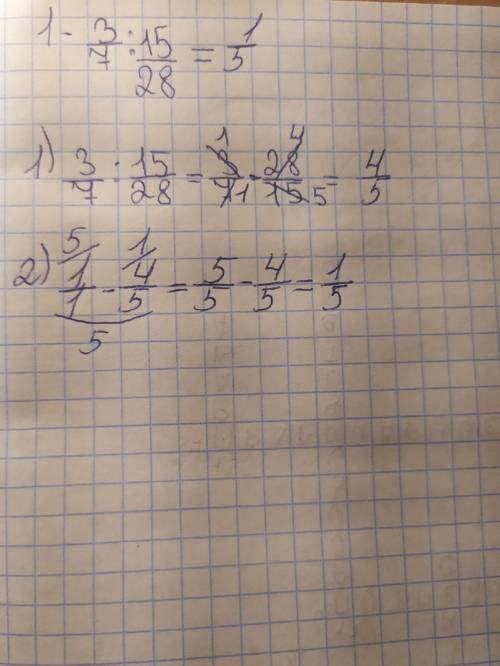 1 - 3/7 : 15/28 = 1/5
1) 3/7 : 15/28 = 3 1/7 1 · 28 4/15 5 = 4/5
2) 5/ 1/1 - 1/ 4/5 = 5/5 - 4/5 = 1/5
5